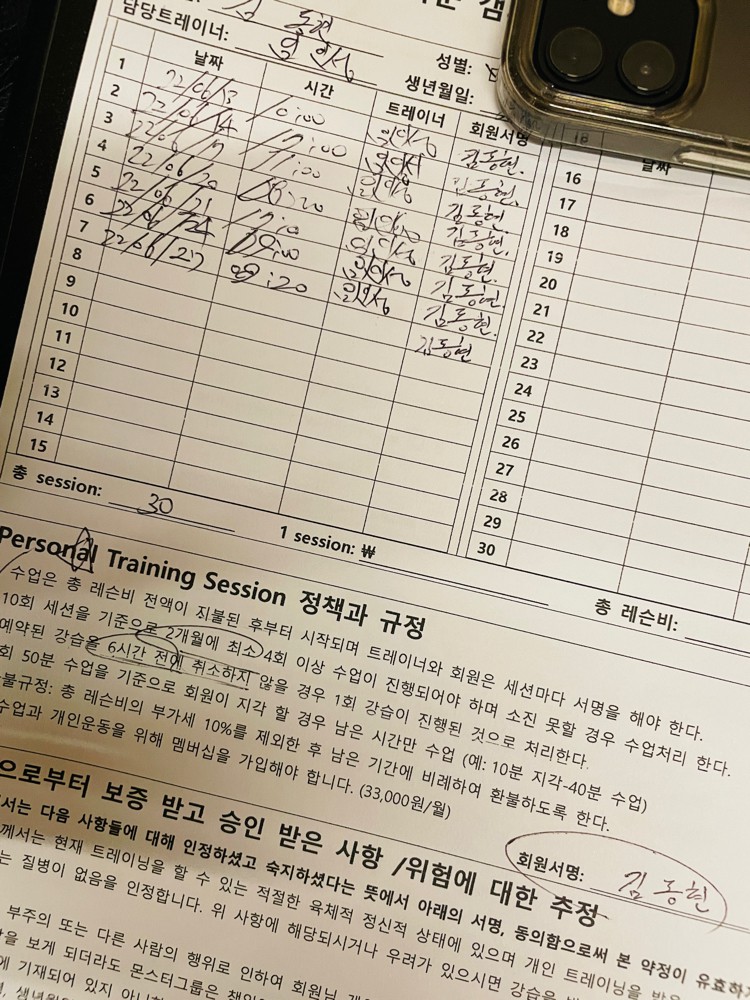 김 동현
담당트레이너:
성별:
생년월일:
날짜 시간 트레이너 회원서명 날짜
1 22/06/13 10:00 김동현.
2 22/06/14 17:00 김동현.
3 22/06/17 11:00 김동현.
4 22/06/20 김동현.
5 22/06/21 김동현.
6 22/06/22 19:00 김동현.
7 22/06/27 09:20 김동현.
8 김동현
9
10
11
12
13
14
15
16
17
18
19
20
21
22
23
24
25
26
27
28
29
30
총 session: 30
1 session: ₩
총 레슨비:
Personal Training Session 정책과 규정
수업은 총 레슨비 전액이 지불된 후부터 시작되며 트레이너와 회원은 세션마다 서명을 해야 한다.
10회 세션을 기준으로 2개월에 최소 4회 이상 수업이 진행되어야 하며 소진 못할 경우 수업처리 한다.
예약된 강습을 6시간 전에 취소하지 않을 경우 1회 강습이 진행된 것으로 처리한다.
회 50분 수업을 기준으로 회원이 지각 할 경우 남은 시간만 수업 (예: 10분 지각-40분 수업)
불규정: 총 레슨비의 부가세 10%를 제외한 후 남은 기간에 비례하여 환불하도록 한다.
수업과 개인운동을 위해 멤버십을 가입해야 합니다. (33,000원/월)
회원서명: 김동현
으로부터 보증 받고 승인 받은 사항 /위험에 대한 추정
서는 다음 사항들에 대해 인정하셨고 숙지하셨다는 뜻에서 아래의 서명, 동의함으로써 본 약정이 유효하
께서는 현재 트레이닝을 할 수 있는 적절한 육체적 정신적 상태에 있으며 개인 트레이닝을 받
는 질병이 없음을 인정합니다. 위 사항에 해당되시거나 우려가 있으시면 강습을
부주의 또는 다른 사람의 행위로 인하여 회원님
을 보게 되더라도 몬스터그룹은 책임
에 기재되어 있지 아니한